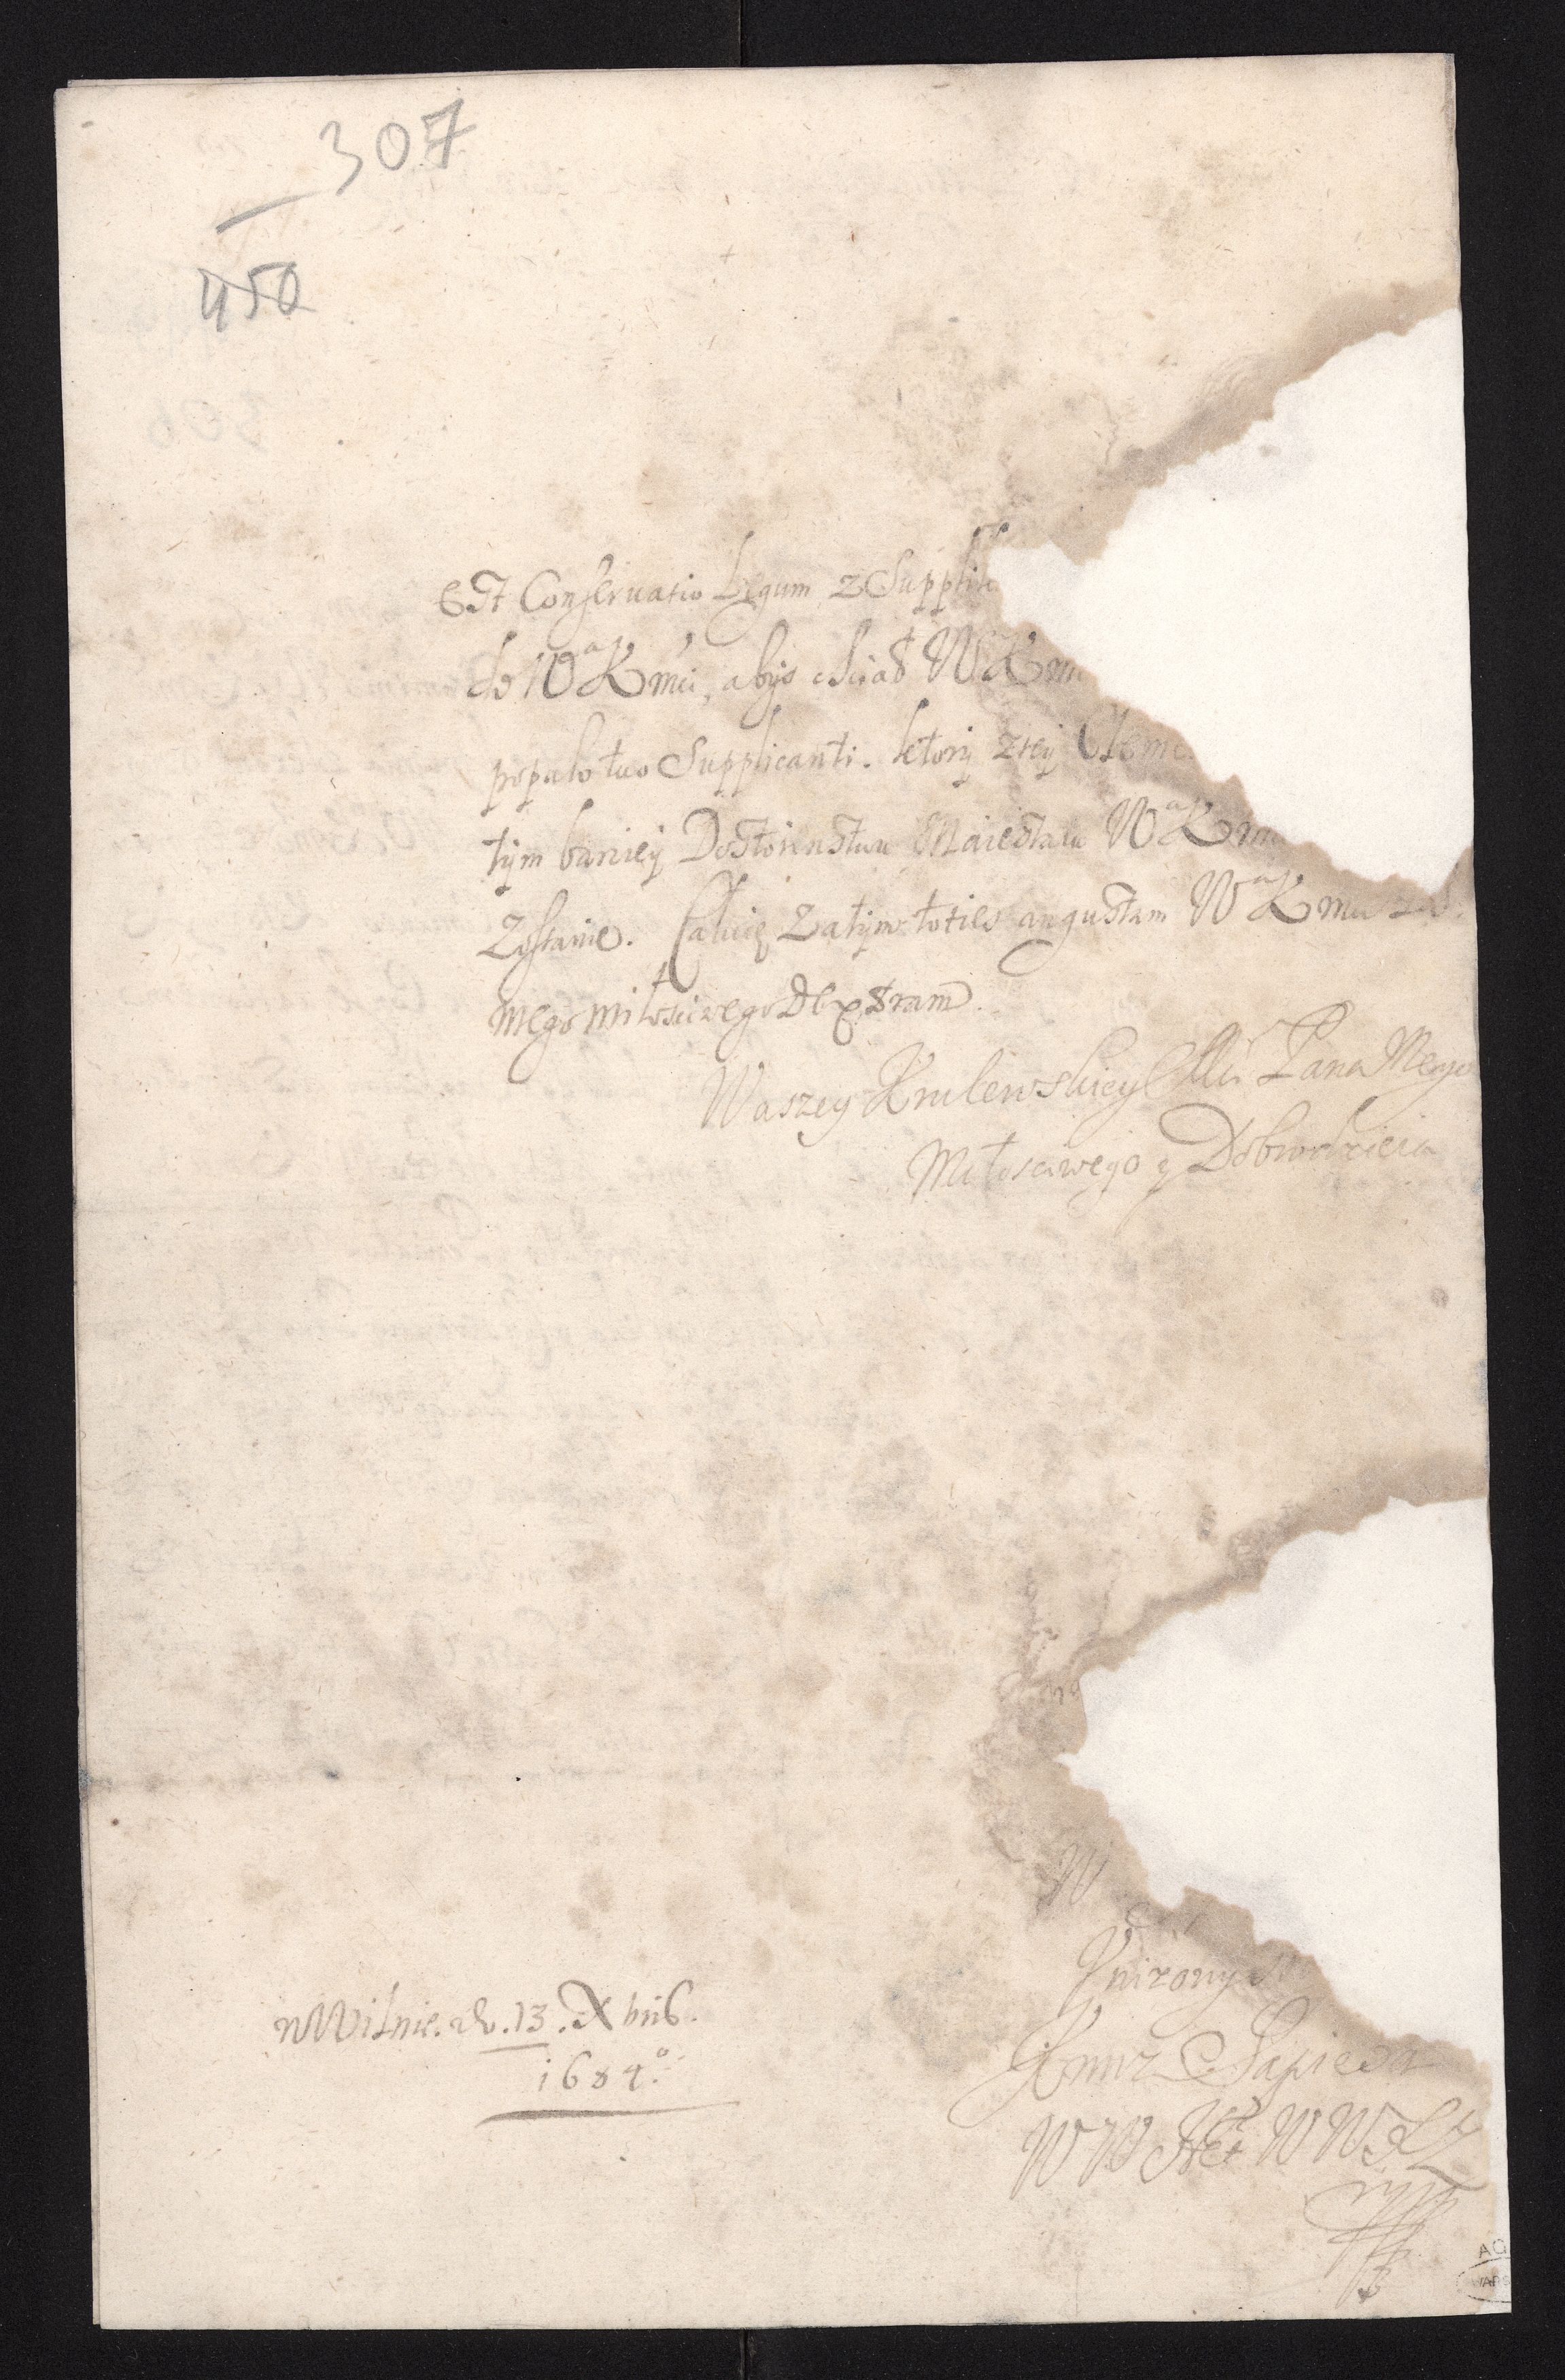 307
450
Est Conseruatio Legum, z Supplik
do WaKmci, abys chciał WKm
populo tuo Supplicanti. ktory z tey Cleme
tym barziey Dostoienstwu Maiestatu WaKm
Zostanie. Całuię zatym toties augustam WaKmci
mego miłosciwego Dextram.
Waszey Krulewskiey Mci Pana Mego
Miłosciwego y Dobrodzieia
W
Vnizony
Kmrz Sapieha
WW Het WWXL
wWilnie. do. 13. Xbris.
1684o.